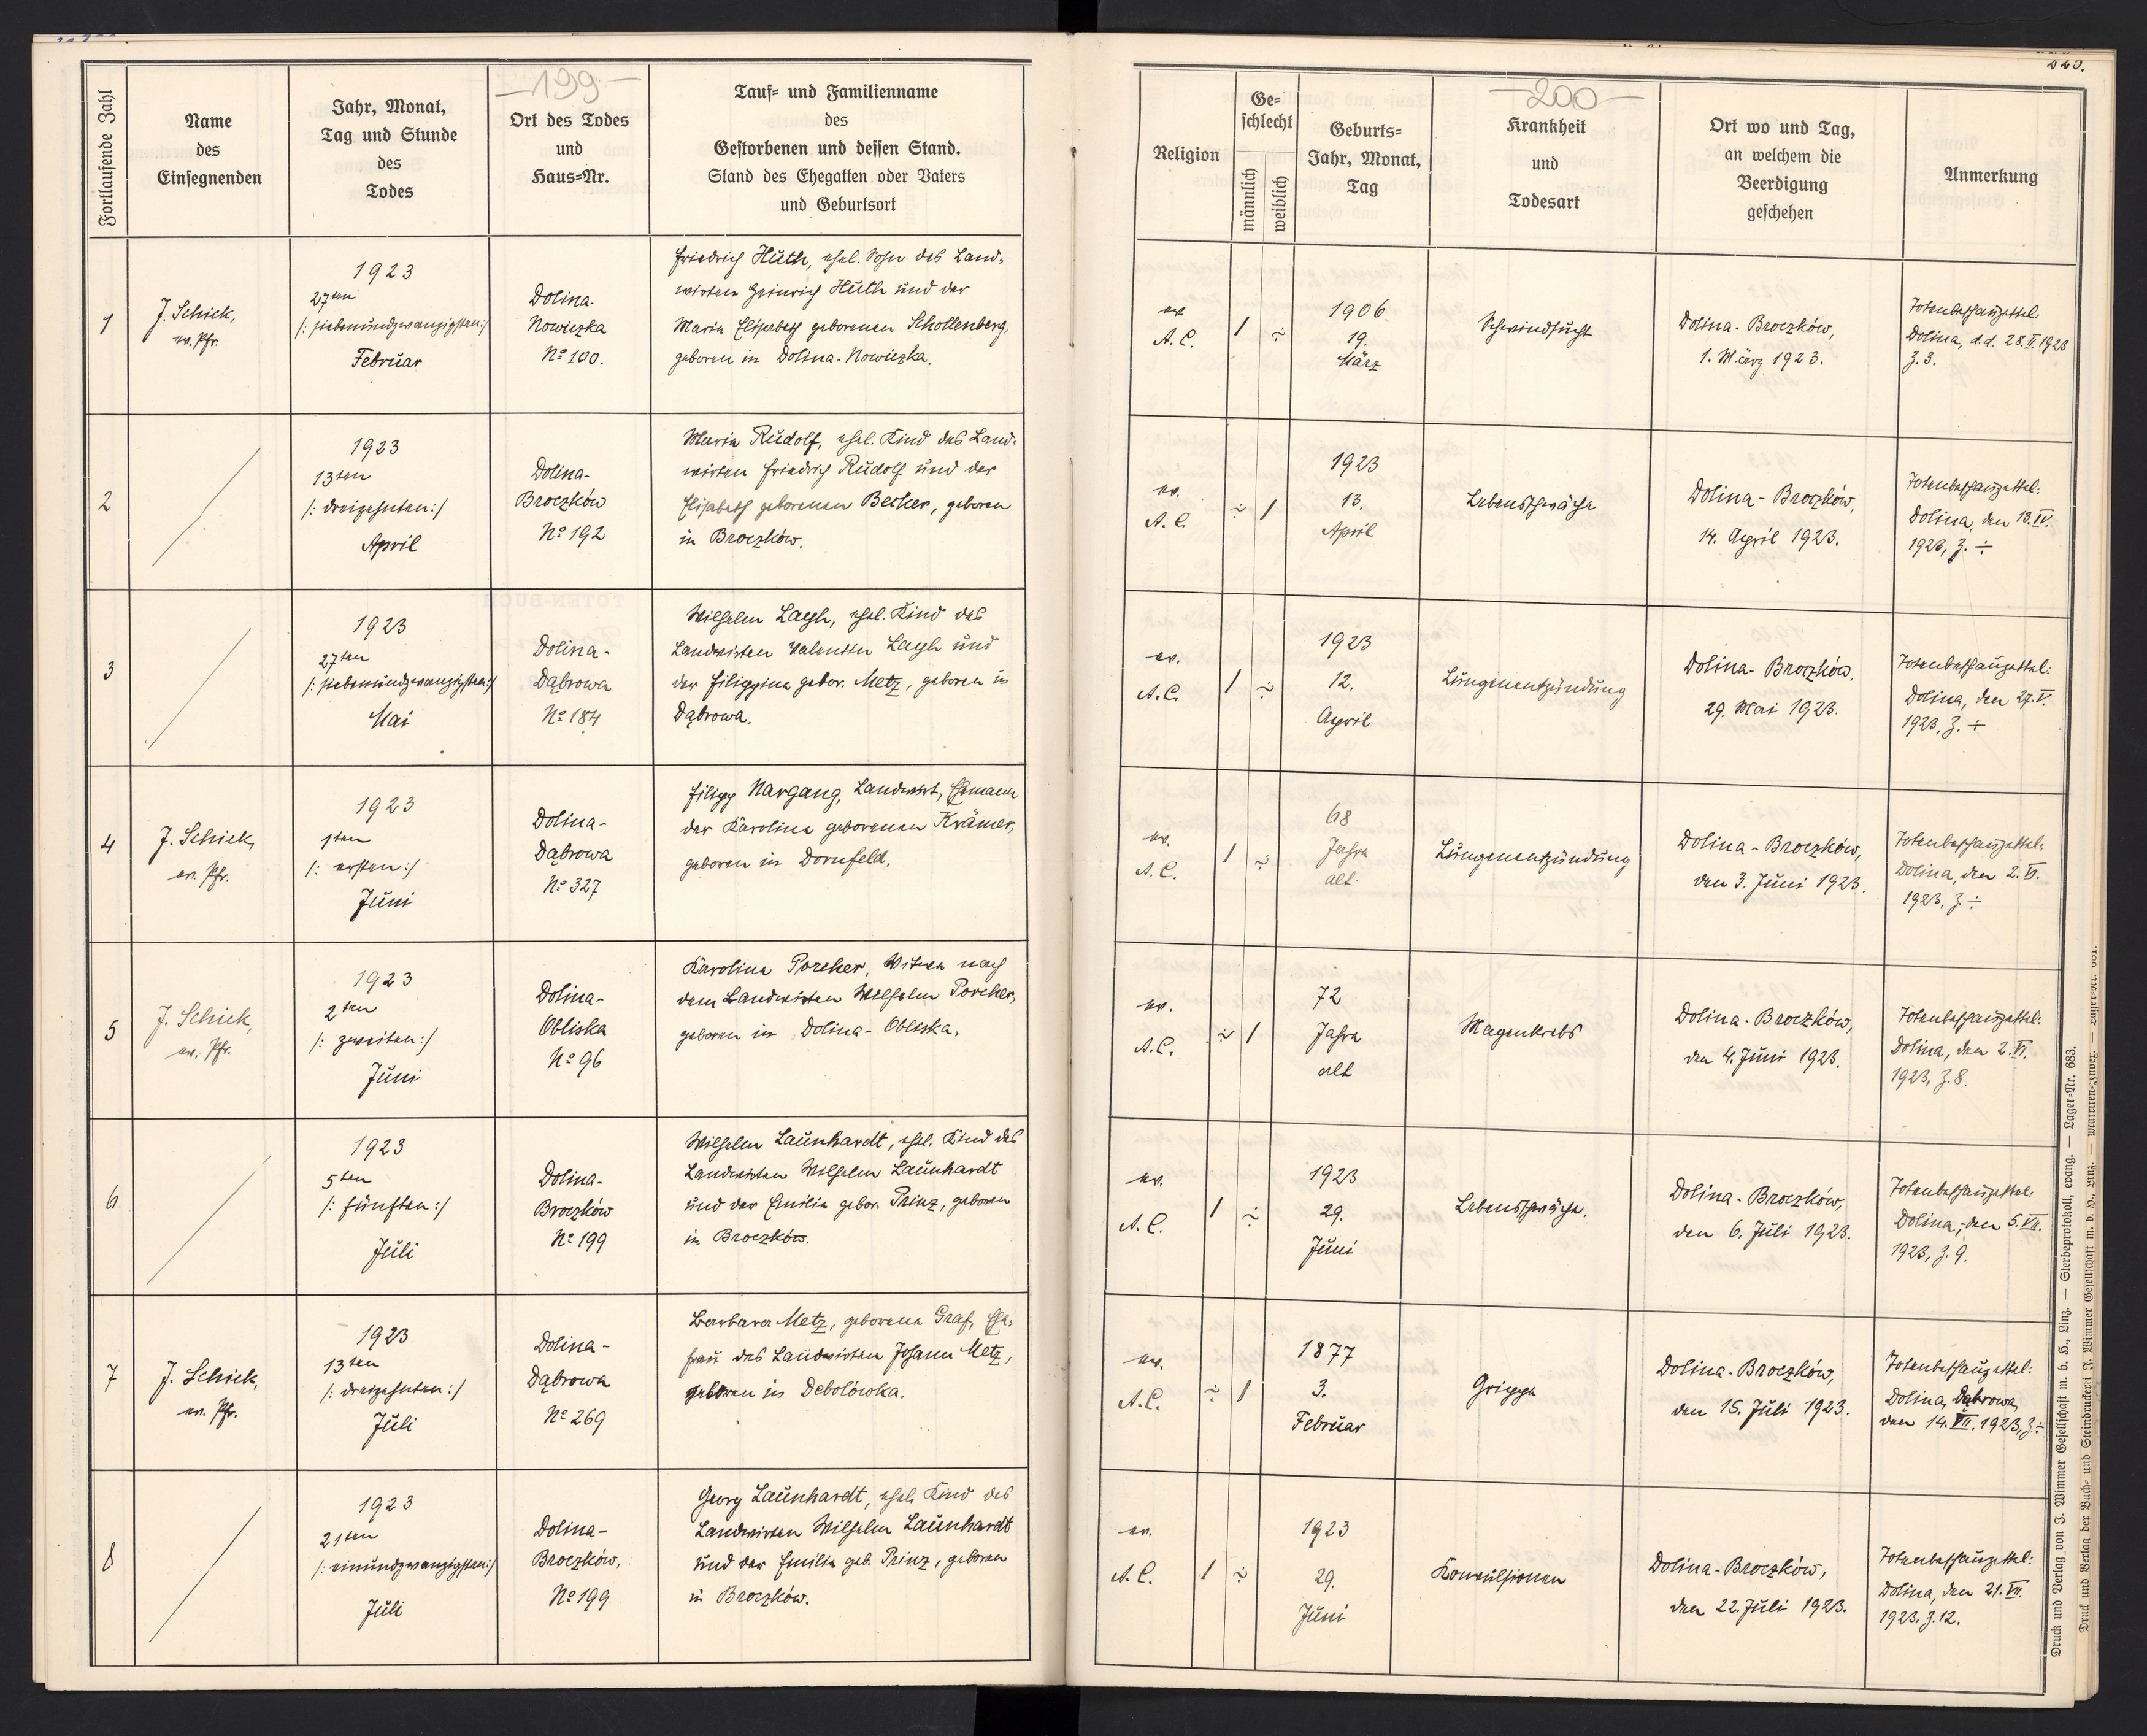 — 199 —
Fortlaufende Zahl
Name
des
Einsegnenden
Jahr, Monat,
Tag und Stunde
des
Todes
Ort des Todes
und
Haus=Nr.
Tauf= und Familienname
des
Gestorbenen und dessen Stand.
Stand des Ehegatten oder Vaters
und Geburtsort
1
J. Schick,
ev. Pfr.
1923
27ten
/: siebenundzwanzigsten:/
Februar
Dolina-
Nowiczka
No 100.
Friedrich Huth, ehel. Sohn des Land-
wirten Heinrich Huth und der
Maria Elisabeth geborenen Schollenberg,
geboren in Dolina-Nowiczka.
2
1923
13ten
/: dreizehnten:/
April
Dolina-
Broczków
No 192
Maria Rudolf, ehel. Kind des Land-
wirten Friedrich Rudolf und der
Elisabeth geborenen Becker, geboren
in Broczków.
3
1923
27ten
/: siebenundzwanzigsten:/
Mai
Dolina-
Dąbrowa
No 184
Wilhelm Layh, ehel. Kind des
Landwirten Valentin Layh und
der Filippina gebor. Metz, geboren in
Dąbrowa.
4
J. Schick,
ev. Pfr.
1923
1ten
/: ersten:/
Juni
Dolina-
Dąbrowa
No 327
Filipp Nargang, Landwirt, Ehmann
der Karolina geborenen Krämer,
geboren in Dornfeld.
5
J. Schick,
ev. Pfr.
1923
2ten
/: zweiten:/
Juni
Dolina-
Obliska
No 96
Karolina Porcher, Witwe nach
dem Landwirten Wilhelm Porcher,
geboren in Dolina-Obliska.
6
1923
5ten
/: fünften:/
Juli
Dolina-
Broczków
No 199
Wilhelm Launhardt, ehel. Kind des
Landwirten Wilhelm Launhardt
und der Emilia gebor. Prinz, geboren
in Broczków.
7
J. Schick,
ev. Pfr.
1923
13ten
/: dreizehnten:/
Juli
Dolina-
Dąbrowa
No 269
Barbara Metz, geborene Graf, Ehe-
frau des Landwirten Johann Metz,
geboren in Debolówka.
8
1923
21ten
/: einundzwanzigsten:/
Juli
Dolina-
Broczków,
No 199
Georg Launhardt, ehel. Kind des
Landwirten Wilhelm Launhardt
und der Emilia geb. Prinz, geboren
in Broczków.
— 200 —
Religion
Ge=
schlecht
männlich
weiblich
Geburts=
Jahr, Monat,
Tag
Krankheit
und
Todesart
Ort wo und Tag,
an welchem die
Beerdigung
geschehen
Anmerkung
ev.
A. C.
1
÷
1906
19.
März
Schwindsucht
Dolina-Broczków,
1. März 1923.
Totenbeschauzettel:
Dolina, d.d. 28.II.1923
Z. 3.
ev.
A. C.
÷
1
1923
13.
April
Lebensschwäche
Dolina-Broczków,
14. April 1923.
Totenbeschauzettel:
Dolina, den 13.IV.
1923, Z. ÷
ev.
A. C.
1
÷
1923
12.
April
Lungenentzündung
Dolina-Broczków,
29. Mai 1923.
Totenbeschauzettel:
Dolina, den 27.V.
1923, Z. ÷
ev.
A. C.
1
÷
68
Jahre
alt.
Lungenentzündung
Dolina-Broczków,
den 3. Juni 1923.
Totenbeschauzettel:
Dolina, den 2.VI.
1923, Z. ÷
ev.
A. C.
÷
1
72
Jahre
alt
Magenkrebs
Dolina-Broczków,
den 4. Juni 1923.
Totenbeschauzettel:
Dolina, den 2.VI.
1923, Z. 8.
ev.
A. C.
1
÷
1923
29.
Juni
Lebensschwäche.
Dolina-Broczków,
den 6. Juli 1923.
Totenbeschauzettel:
Dolina, den 5.VII.
1923, Z. 9.
ev.
A. C.
÷
1
1877
3.
Februar
Grippe
Dolina-Broczków,
den 15. Juli 1923.
Totenbeschauzettel:
Dolina, Dąbrowa,
den 14.VII.1923, Z. ÷
ev.
A. C.
1
÷
1923
29.
Juni
Konvulsionen
Dolina-Broczków,
den 22. Juli 1923.
Totenbeschauzettel:
Dolina, den 21.VII.
1923. Z. 12.
Druck und Verlag von J. Wimmer Gesellschaft m. b. H., Linz. — Sterbeprotokoll, evang. — Lager=Nr. 683.
Druck und Verlag der Buch= und Steindruckerei J. Wimmer Gesellschaft m. b. H., Linz.